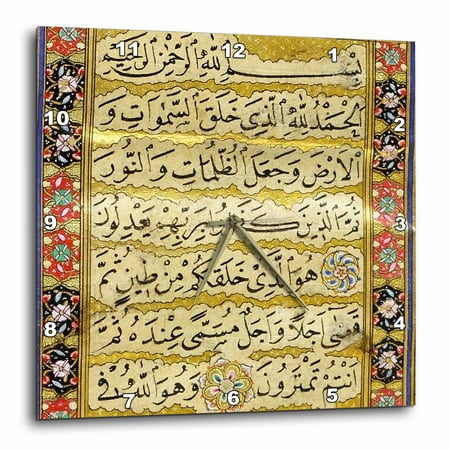 11 12 1
بِسْمِ اللهِ الرَّحْمٰنِ الرَّحِيمِ
10
اَلْحَمْدُ لِلّٰهِ الَّذِي خَلَقَ السَّمٰوَاتِ وَ
2
الْاَرْضَ وَجَعَلَ الظُّلُمَاتِ وَالنُّورَ
9 3
ثُمَّ الَّذِينَ كَفَرُوا بِرَبِّهِمْ يَعْدِلُونَ
هُوَ الَّذِي خَلَقَكُمْ مِنْ طِينٍ ثُمَّ
8 4
قَضٰى اَجَلًا وَاَجَلٌ مُسَمًّى عِنْدَهُ ثُمَّ
اَنْتُمْ تَمْتَرُونَ وَهُوَ اللهُ فِي
7 6 5